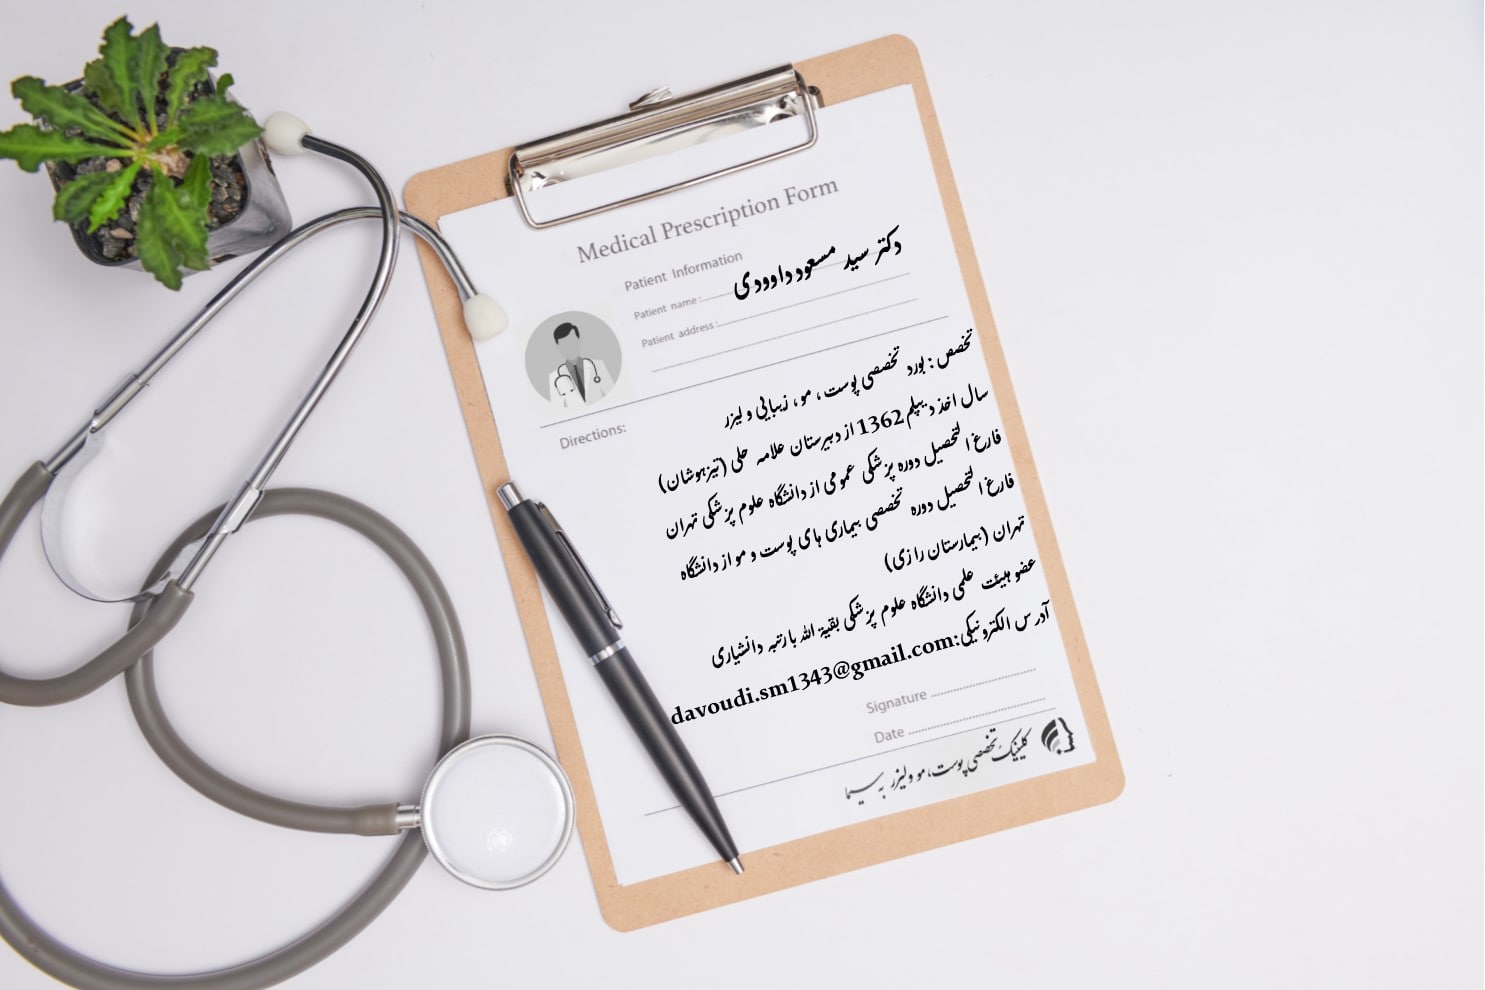 Medical Prescription Form
Patient Information
دکتر سید مسعود داوودی
Patient name :
Patient address :
Directions:
تخصص : بورد تخصصی پوست ، مو ، زیبایی و لیزر
سال اخذ دیپلم 1362 از دبیرستان علامه حلی (تیزهوشان)
فارغ التحصیل دوره پزشکی عمومی از دانشگاه علوم پزشکی تهران
فارغ التحصیل دوره تخصصی بیماری های پوست و مو از دانشگاه
تهران (بیمارستان رازی)
عضو هیئت علمی دانشگاه علوم پزشکی بقیة الله با رتبه دانشیاری
آدرس الکترونیکی:davoudi.sm1343@gmail.com
Signature
Date
کلینیک تخصصی پوست، مو و لیزر به سیما